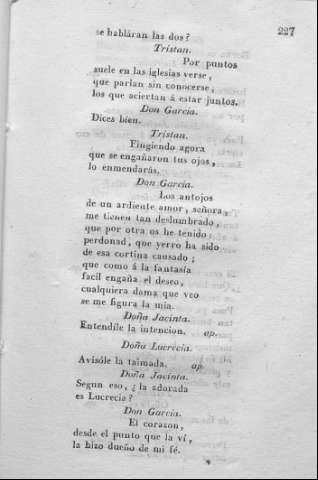 227
se habláran las dos?
Tristan.
Por puntos
suele en las iglesias verse,
que parlan sin conocerse,
los que aciertan á estar juntos.
Don Garcia.
Dices bien.
Tristan.
Fingiendo agora
que se engañaron tus ojos,
lo enmendarás.
Don Garcia.
Los antojos
de un ardiente amor, señora,
me tienen tan deslumbrado,
que por otra os he tenido
perdonad, que yerro ha sido
de esa cortina causado;
que como á la fantasía
facil engaña el deseo,
cualquiera dama que veo
se me figura la mia.
Doña Jacinta.
Entendíle la intencion. ap.
Doña Lucrecia.
Avisóle la taimada. ap
Doña Jacinta.
Segun eso, ¿la adorada
es Lucrecia?
Don Garcia.
El corazon,
desde el punto que la ví,
la hizo dueño de mi fé.